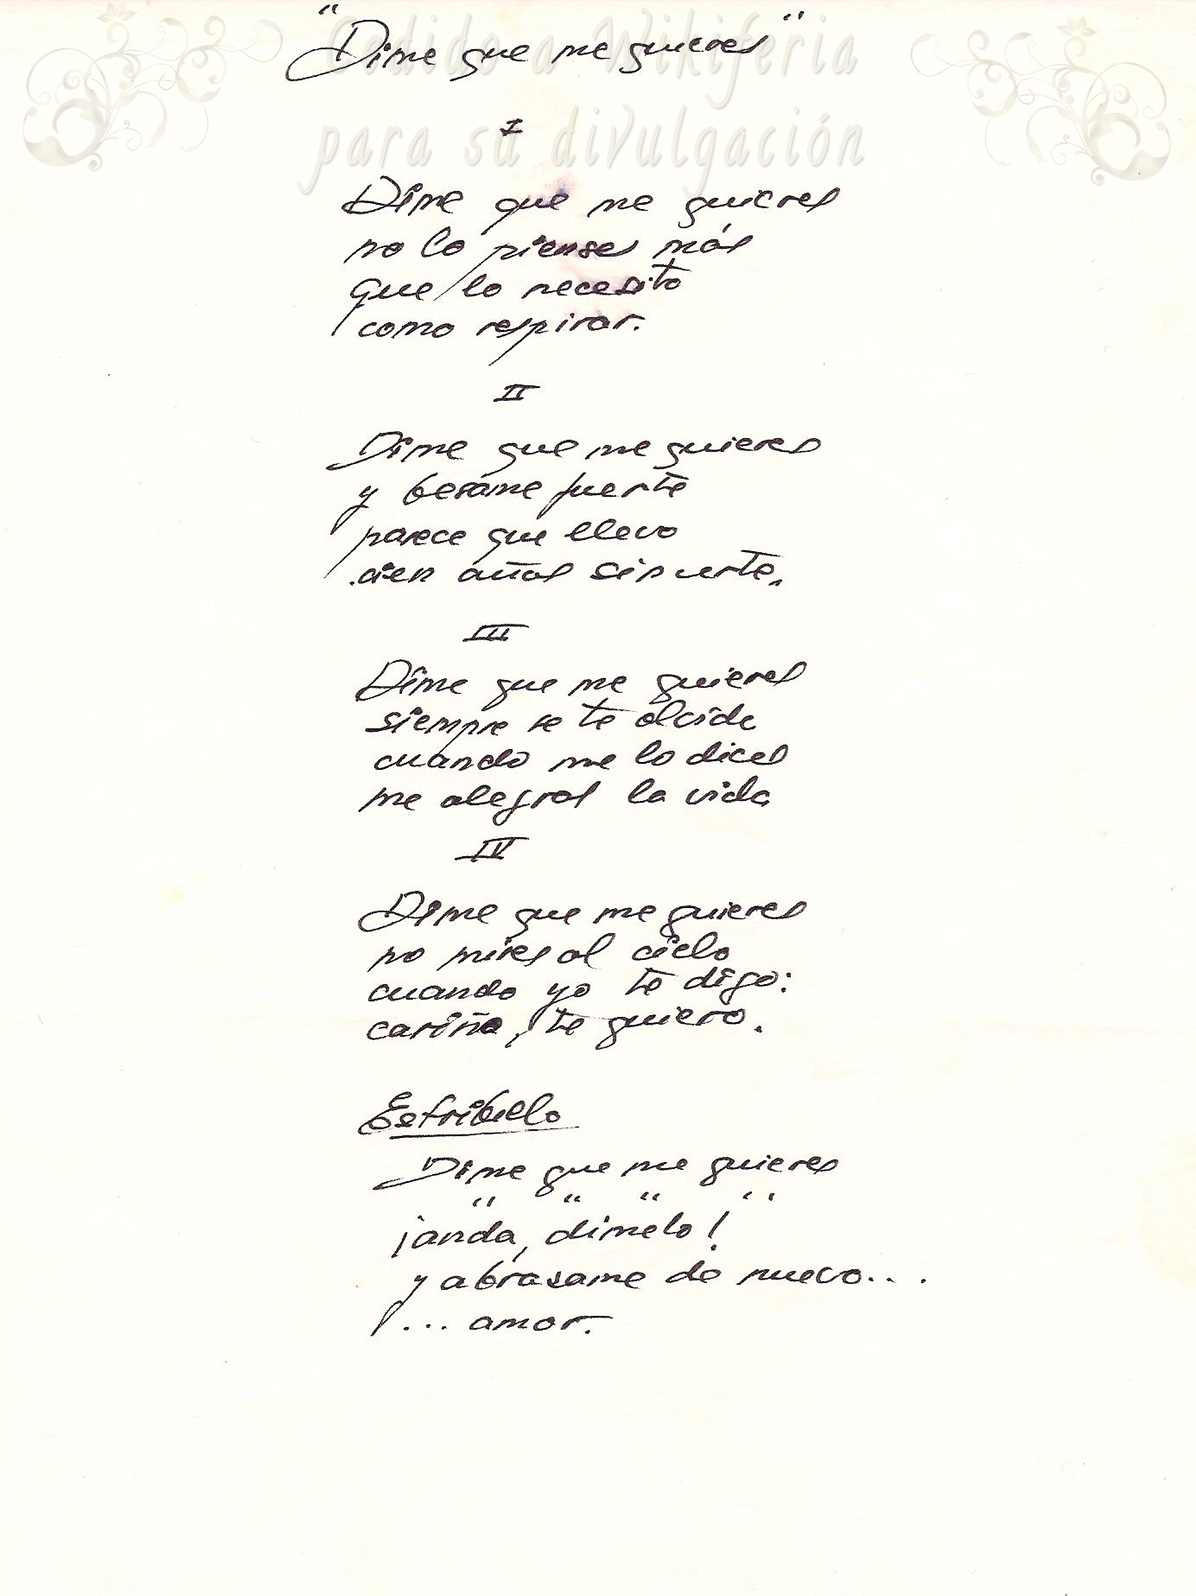 "Dime que me quieres"
Cedido a Wikiferia
para su divulgación
I
Dime que me quieres
no lo pienses más
que lo necesito
como respirar.
II
Dime que me quieres
y besáme fuerte
parece que llevo
cien años sin verte.
III
Dime que me quieres
siempre se te olvida
cuando me lo dices
me alegras la vida
IV
Dime que me quieres
no mires al cielo
cuando yo te digo:
cariño, te quiero.
Estribillo
Dime que me quieres
" " " "
¡anda, dimelo!
y abrasame de nuevo...
... amor.